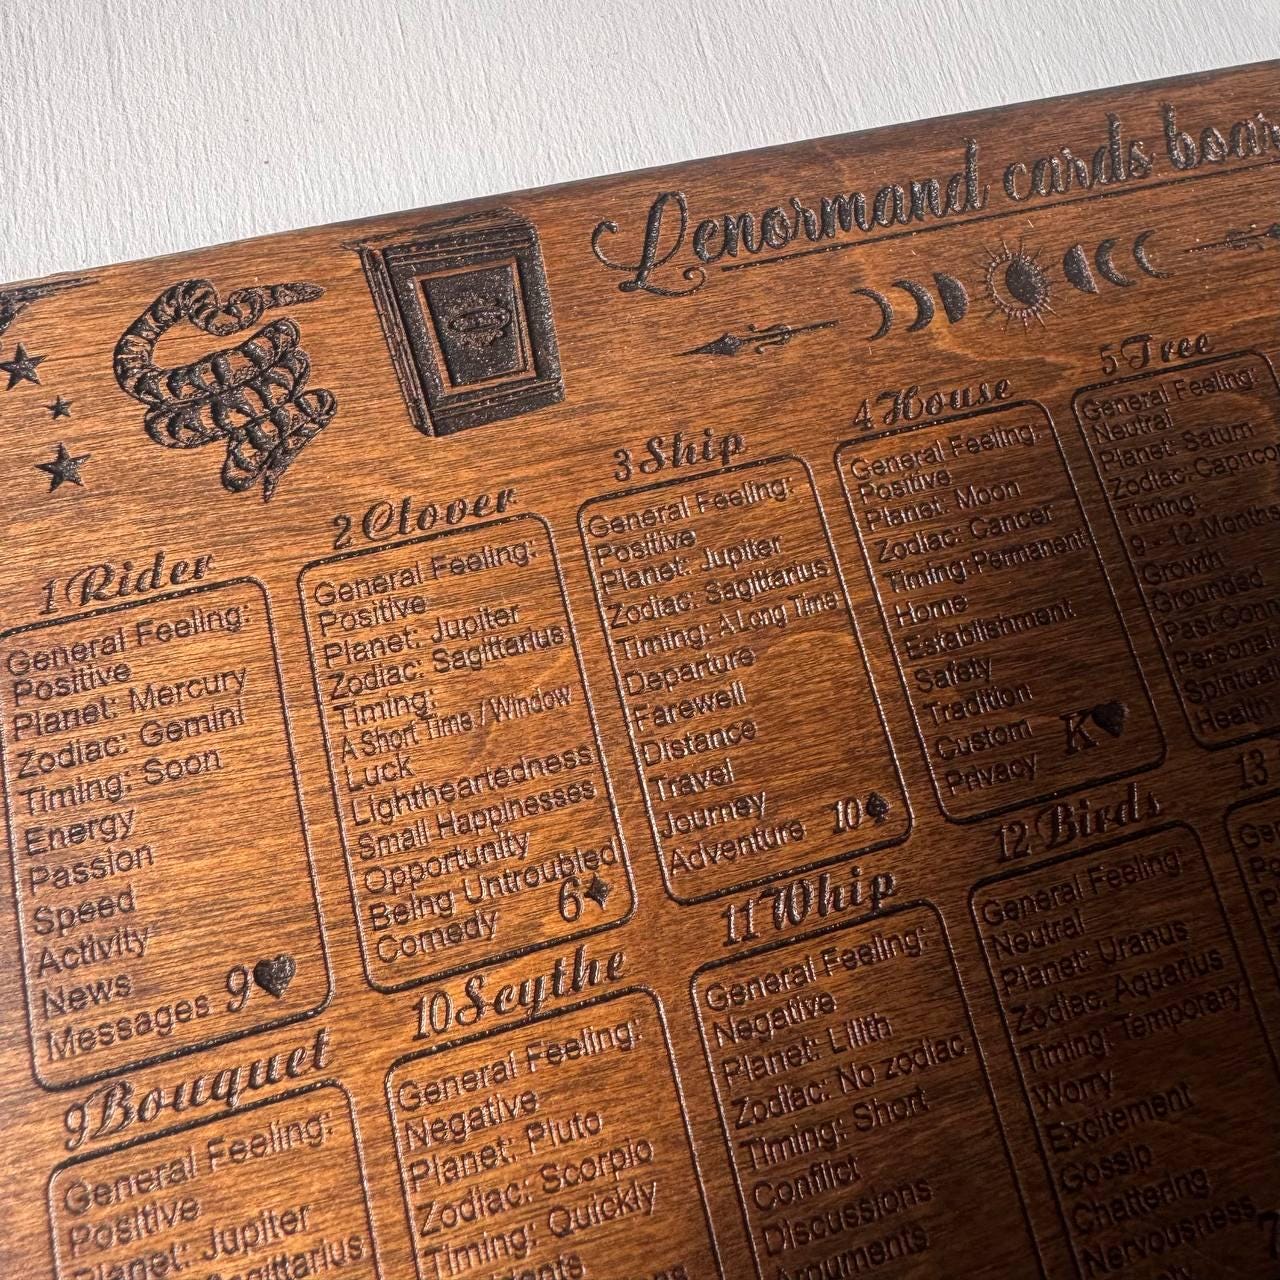 Lenormand cards
1 Rider
General Feeling:
Positive
Planet: Mercury
Zodiac: Gemini
Timing: Soon
Energy
Passion
Speed
Activity
News
Messages 9♥
2 Clover
General Feeling:
Positive
Planet: Jupiter
Zodiac: Sagittarius
Timing:
A Short Time / Window
Luck
Lightheartedness
Small Happinesses
Opportunity
Being Untroubled
Comedy 6♦
3 Ship
General Feeling:
Positive
Planet: Jupiter
Zodiac: Sagittarius
Timing: A Long Time
Departure
Farewell
Distance
Travel
Journey
Adventure 10♠
4 House
General Feeling:
Positive
Planet: Moon
Zodiac: Cancer
Timing: Permanent
Home
Establishment
Safety
Tradition
Custom K♥
Privacy
5 Tree
General Feeling:
Neutral
Planet: Saturn
Zodiac:
Timing:
9 - 12 Months
Growth
Grounded
Past
Health
9 Bouquet
General Feeling:
Positive
Planet: Jupiter
10 Scythe
General Feeling:
Negative
Planet: Pluto
Zodiac: Scorpio
Timing: Quickly
11 Whip
General Feeling:
Negative
Planet: Lilith
Zodiac: No zodiac
Timing: Short
Conflict
Discussions
12 Birds
General Feeling:
Neutral
Planet: Uranus
Zodiac: Aquarius
Timing: Temporary
Worry
Excitement
Gossip
Chattering
Nervousness
13